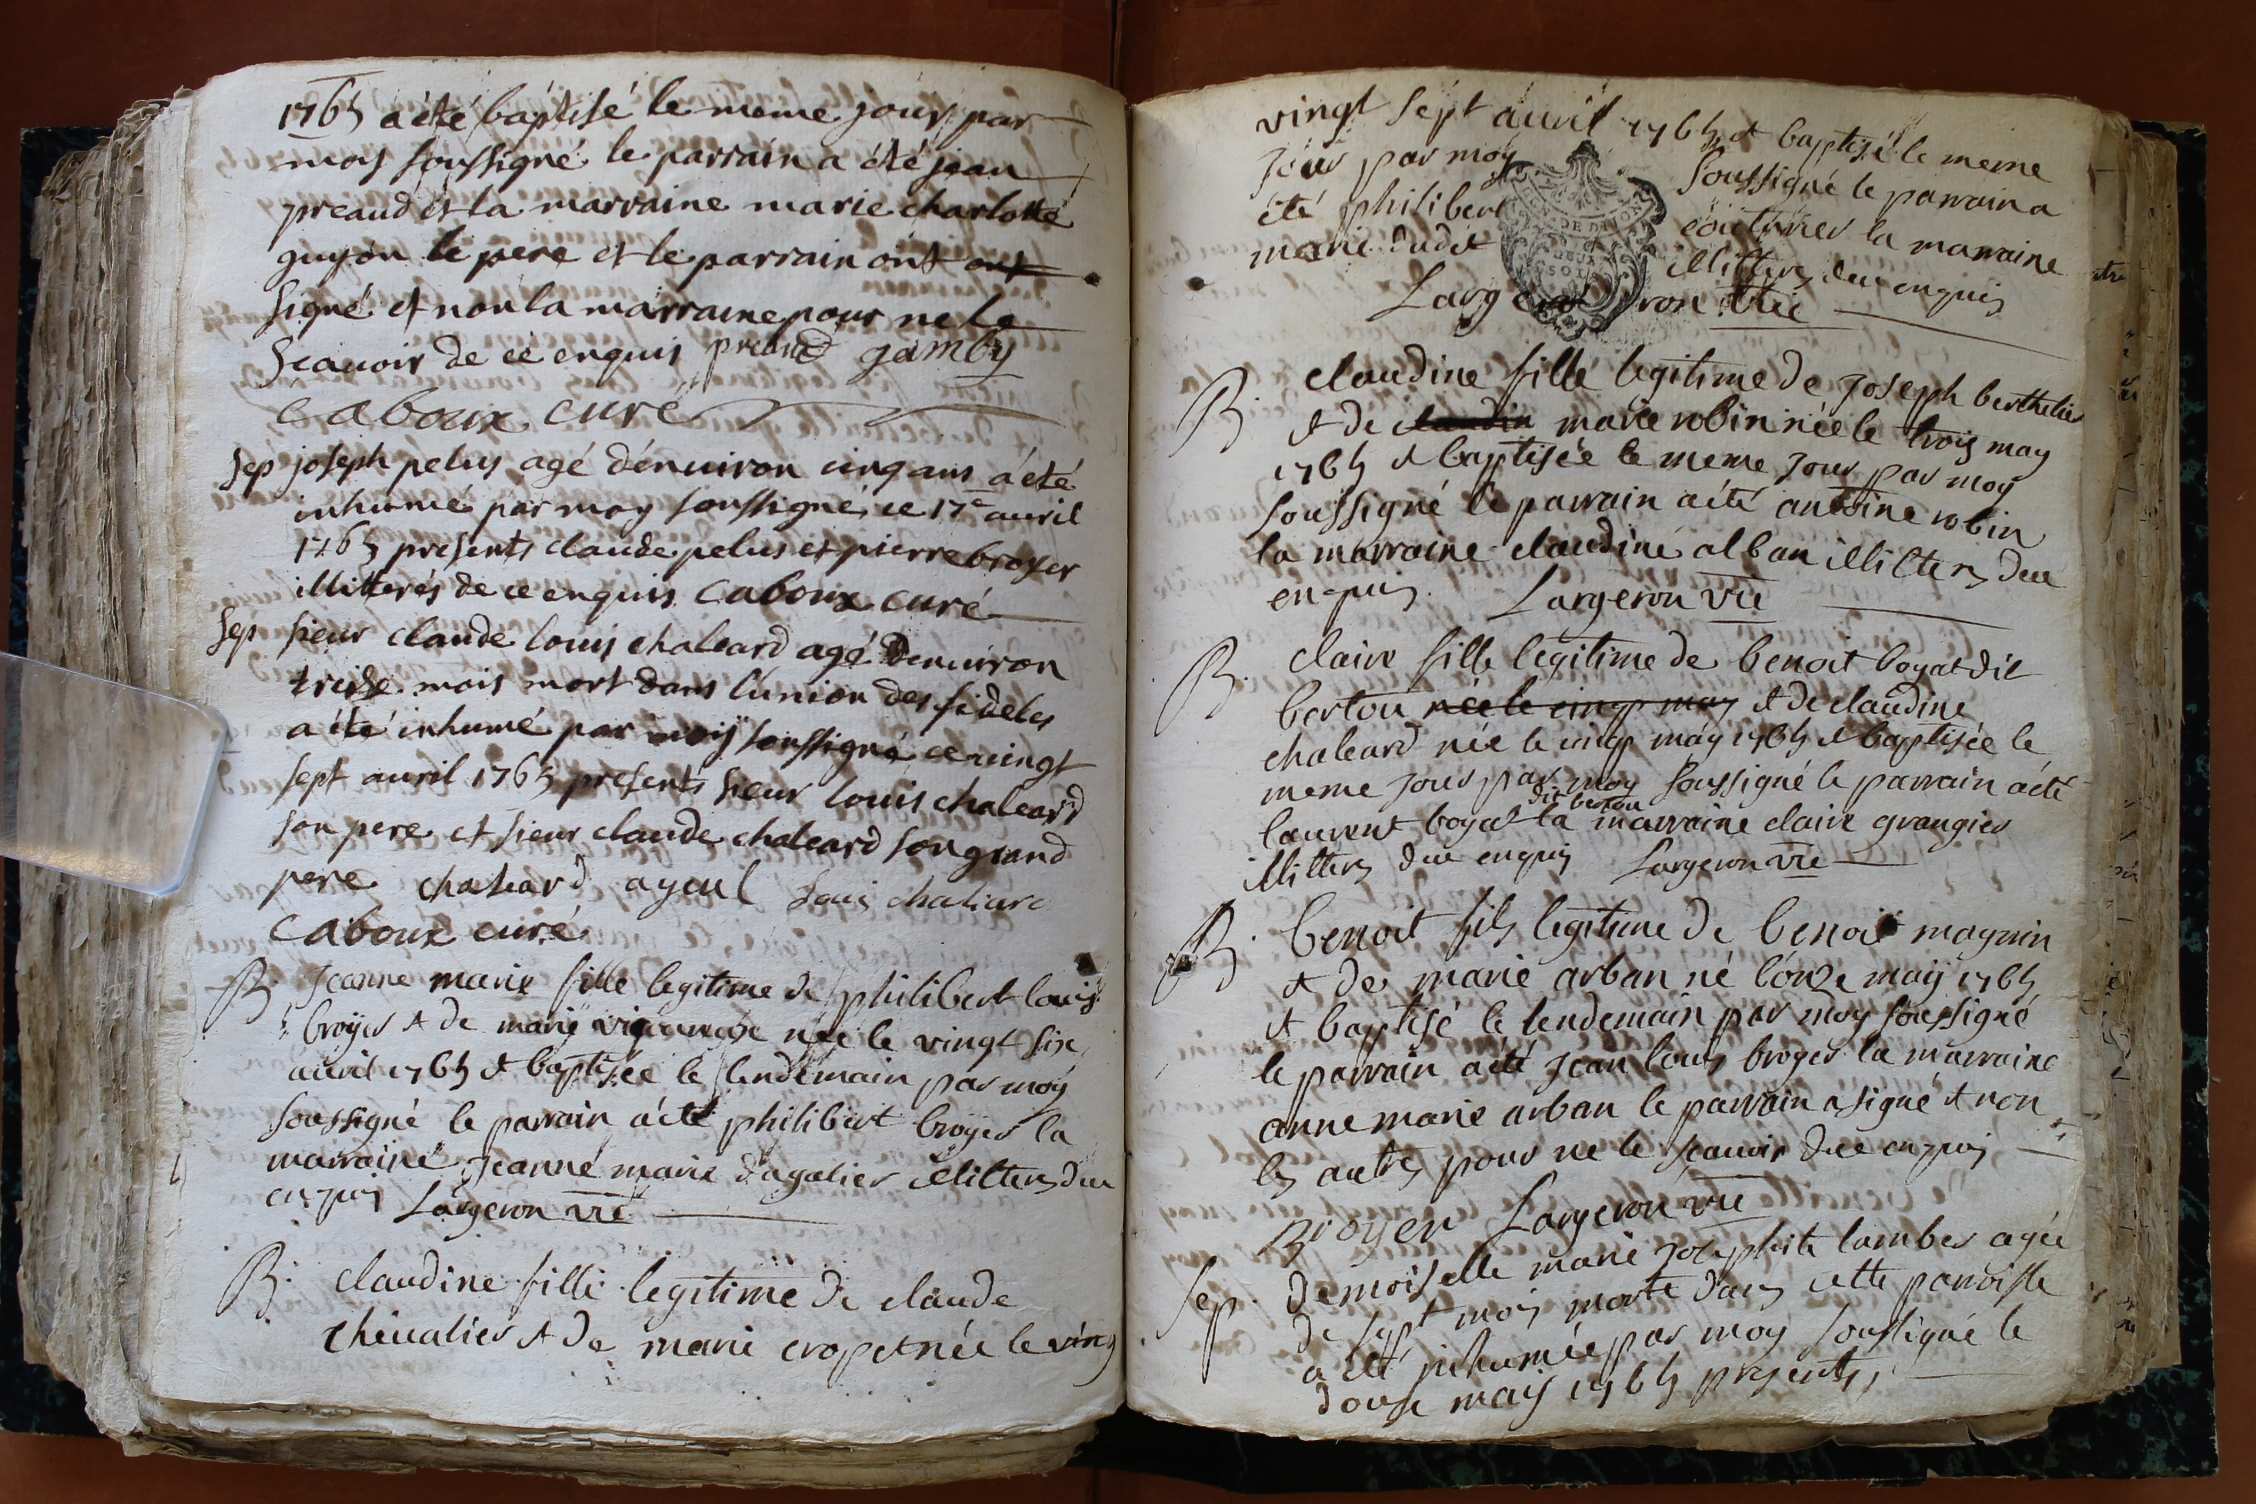 1765 a été baptisé le meme jour par
moy soussigné le parrain a été jean
preaud et la marraine marie charlotte
guyon le pere et le parrain ont ont
signé et non la marraine pour ne le
scavoir de ce enquis preaud gamby
caboux curé
Sep joseph pelus agé dénuiron cinq ans a été
inhumé par moy soussigné ce 17e avril
1765 presents claude pelus et pierre broyer
illitterés de ce enquis caboux curé
Sep sieur claude louis chaleard agé denuiron
treize mois mort dans l'union des fideles
a été inhumé par moy soussigné ce vingt
sept auril 1765 presents sieur louis chaleard
son pere et sieur claude chaleard son grand
pere chaleard ayeul Louis chaleard
caboux curé
B. Jeanne marie fille legitime de philibert louis
broÿer et de marie née le vingt six
auril 1765 et baptisée le lendemain par moy
soussigné le parrain a été philibert broÿer la
marraine jeanne marie dagalier illitters due
enquis Largeron vic
B. claudine fille legitime de claude
chevalier et de marie cropet née le ving
vingt sept auril 1765 et baptisé le meme
Jour par moy soussigné le parrain a
été philibert couturier la marraine
marie dudit illitters due enquis
Largeron vic
B. claudine fille legitime de Joseph berthelier
et de claudin marie robin née le trois may
1765 et baptisée le meme Jour par moy
soussigné le parrain a été antoine robin
la marraine claudine alban illitters due
enquis Largeron vic
B. claire fille legitime de benoit boyat dit
bertou née le cinq may et de claudine
chaleard née le cinq may 1765 et baptisée le
meme Jour par moy soussigné le parrain a été
dit bertou
laurent boyat la marraine claire grangier
illitters due enquis Largeron vic
B. benoit fils legitime de benoit magnin
et de marie arban né l'onze may 1765
et baptisé le lendemain par moy soussigné
le parrain a été Jean louis broyer la marraine
anne marie arban le parrain a signé et non
les autres pour ne le scavoir due enquis
Broyer Largeron vic
Sep. demoiselle marie Josephte lamber agée
de sept mois morte dans cette parroisse
a été inhumée par moy soussigné le
douse may 1765 presents